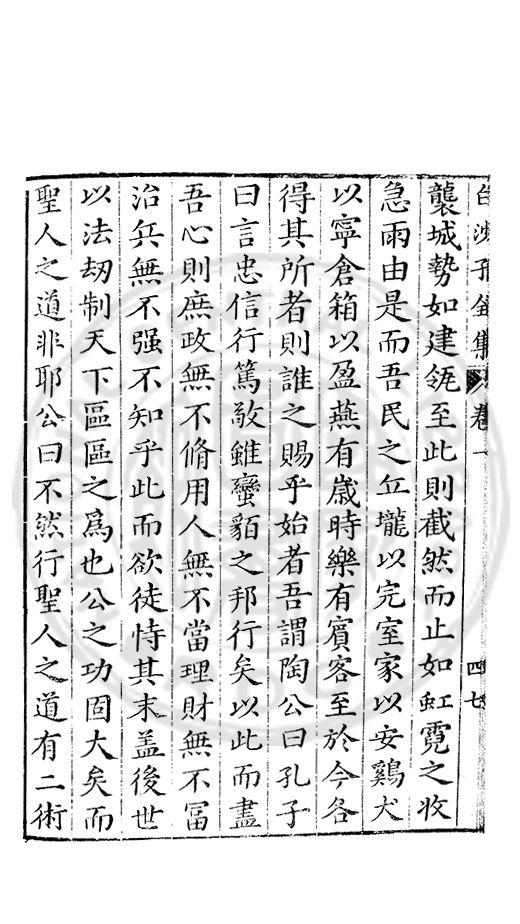 白沙子全集 卷一 四七
襲城勢如建瓴至此則截然而止如虹霓之收
急雨由是而吾民之丘壠以完室家以安鷄犬
以寧倉箱以盈燕有歲時樂有賓客至於今各
得其所者則誰之賜乎始者吾謂陶公曰孔子
曰言忠信行篤敬雖蠻貊之邦行矣以此而盡
吾心則庶政無不脩用人無不當理財無不冨
治兵無不强不知乎此而欲徒恃其末盖後世
以法刼制天下區區之爲也公之功固大矣而
聖人之道非耶公曰不然行聖人之道有二術